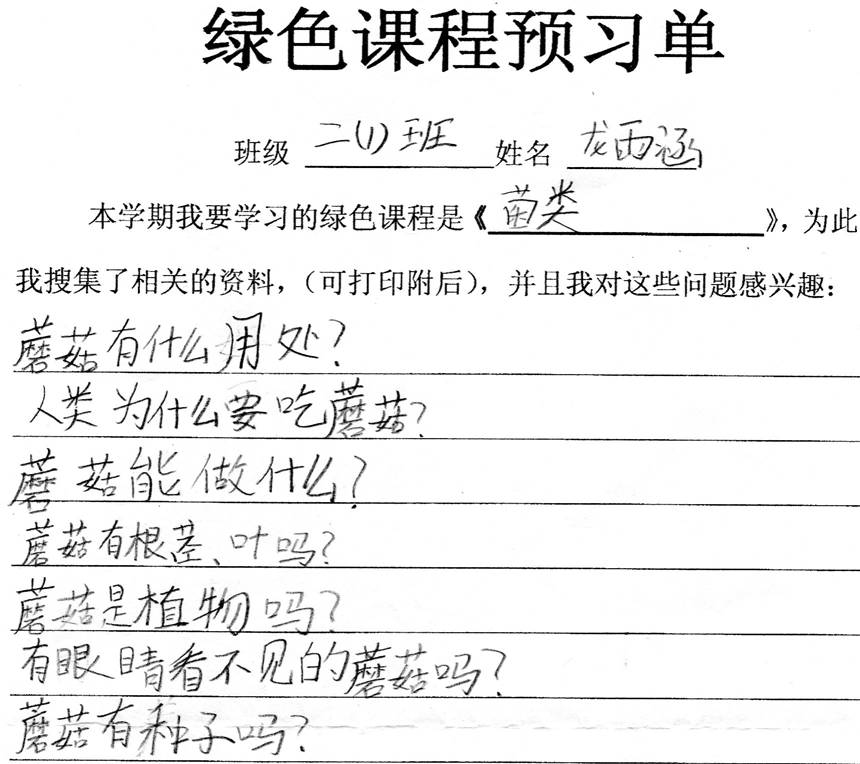 绿色课程预习单
班级 二(1)班 姓名 龙雨涵
本学期我要学习的绿色课程是《菌类》，为此
我搜集了相关的资料，（可打印附后），并且我对这些问题感兴趣：
蘑菇有什么用处？
人类为什么要吃蘑菇？
蘑菇能做什么？
蘑菇有根茎、叶吗？
蘑菇是植物吗？
有眼睛看不见的蘑菇吗？
蘑菇有种子吗？